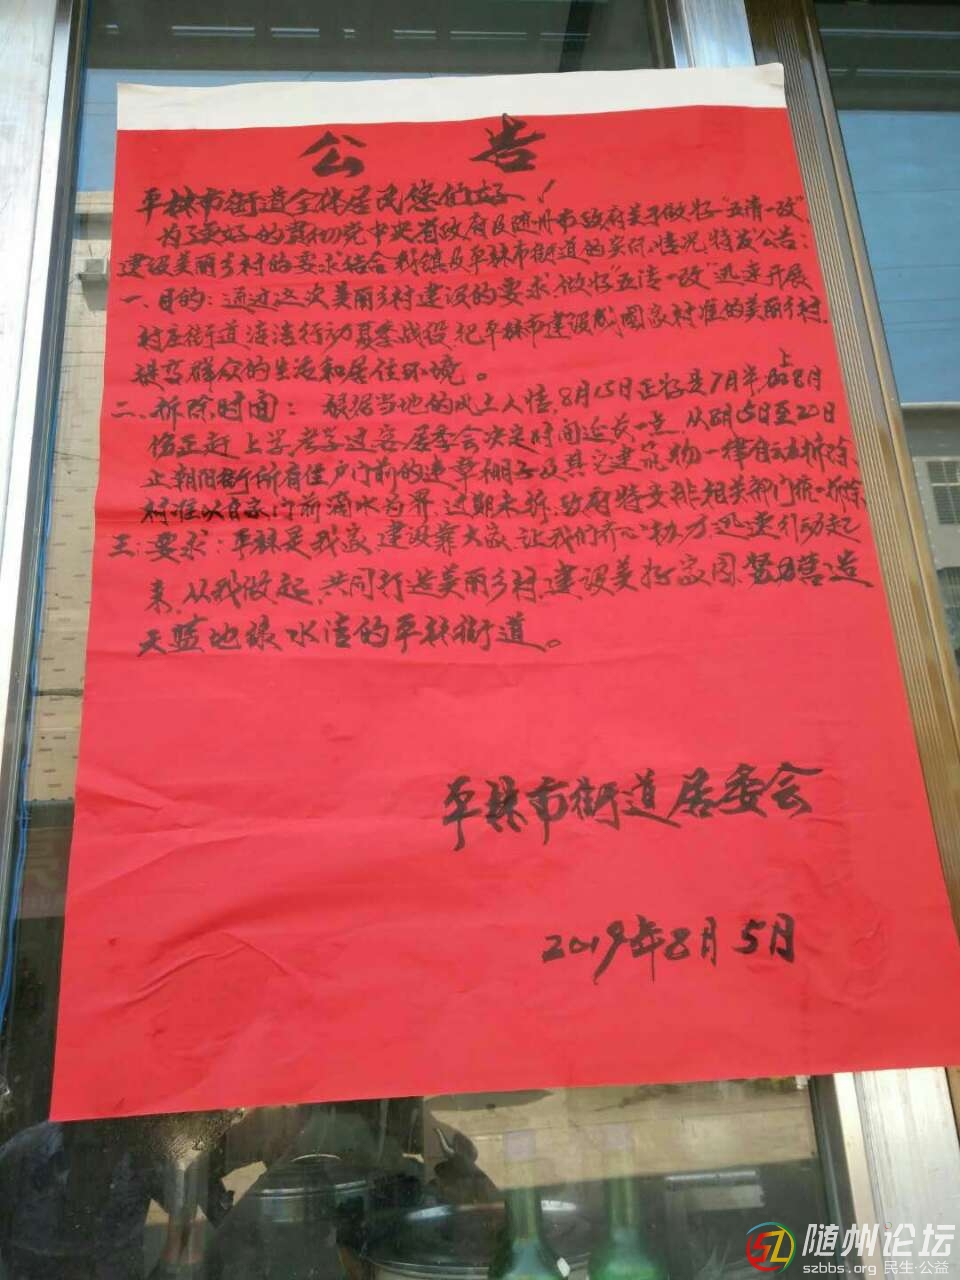 公 告
平林市街道全体居民您们好！
为了更好的贯彻党中央省政府及随州市政府关于做好"五清一改",
建设美丽乡村的要求结合我镇及平林市街道的实际情况,特发公告:
一、目的:通过这次美丽乡村建设的要求,做好"五清一改"迅速开展
村庄街道清洁行动夏季战役把平林市建设成国家标准的美丽乡村,
提高群众的生活和居住环境。
二、拆除时间: 根据当地的风土人情,8月15日正好是7月半,加上8月
份正赶上学 过 居委会决定时间延长一点,从8月15日至20日
止朝阳街所有住户门前的违章棚子及其它建筑物一律自动拆除,
标准以自家门前滴水为界,过期未拆,政府将安排相关部门统一拆除,
三、要求:平林是我家,建设靠大家,让我们齐心协力迅速行动起
来,从我做起,共同打造美丽乡村,建设美好家园,努力营造
天蓝地绿水清的平林街道。
平林市街道居委会
2019年8月5月
随州论坛
szbbs.org 民生·公益